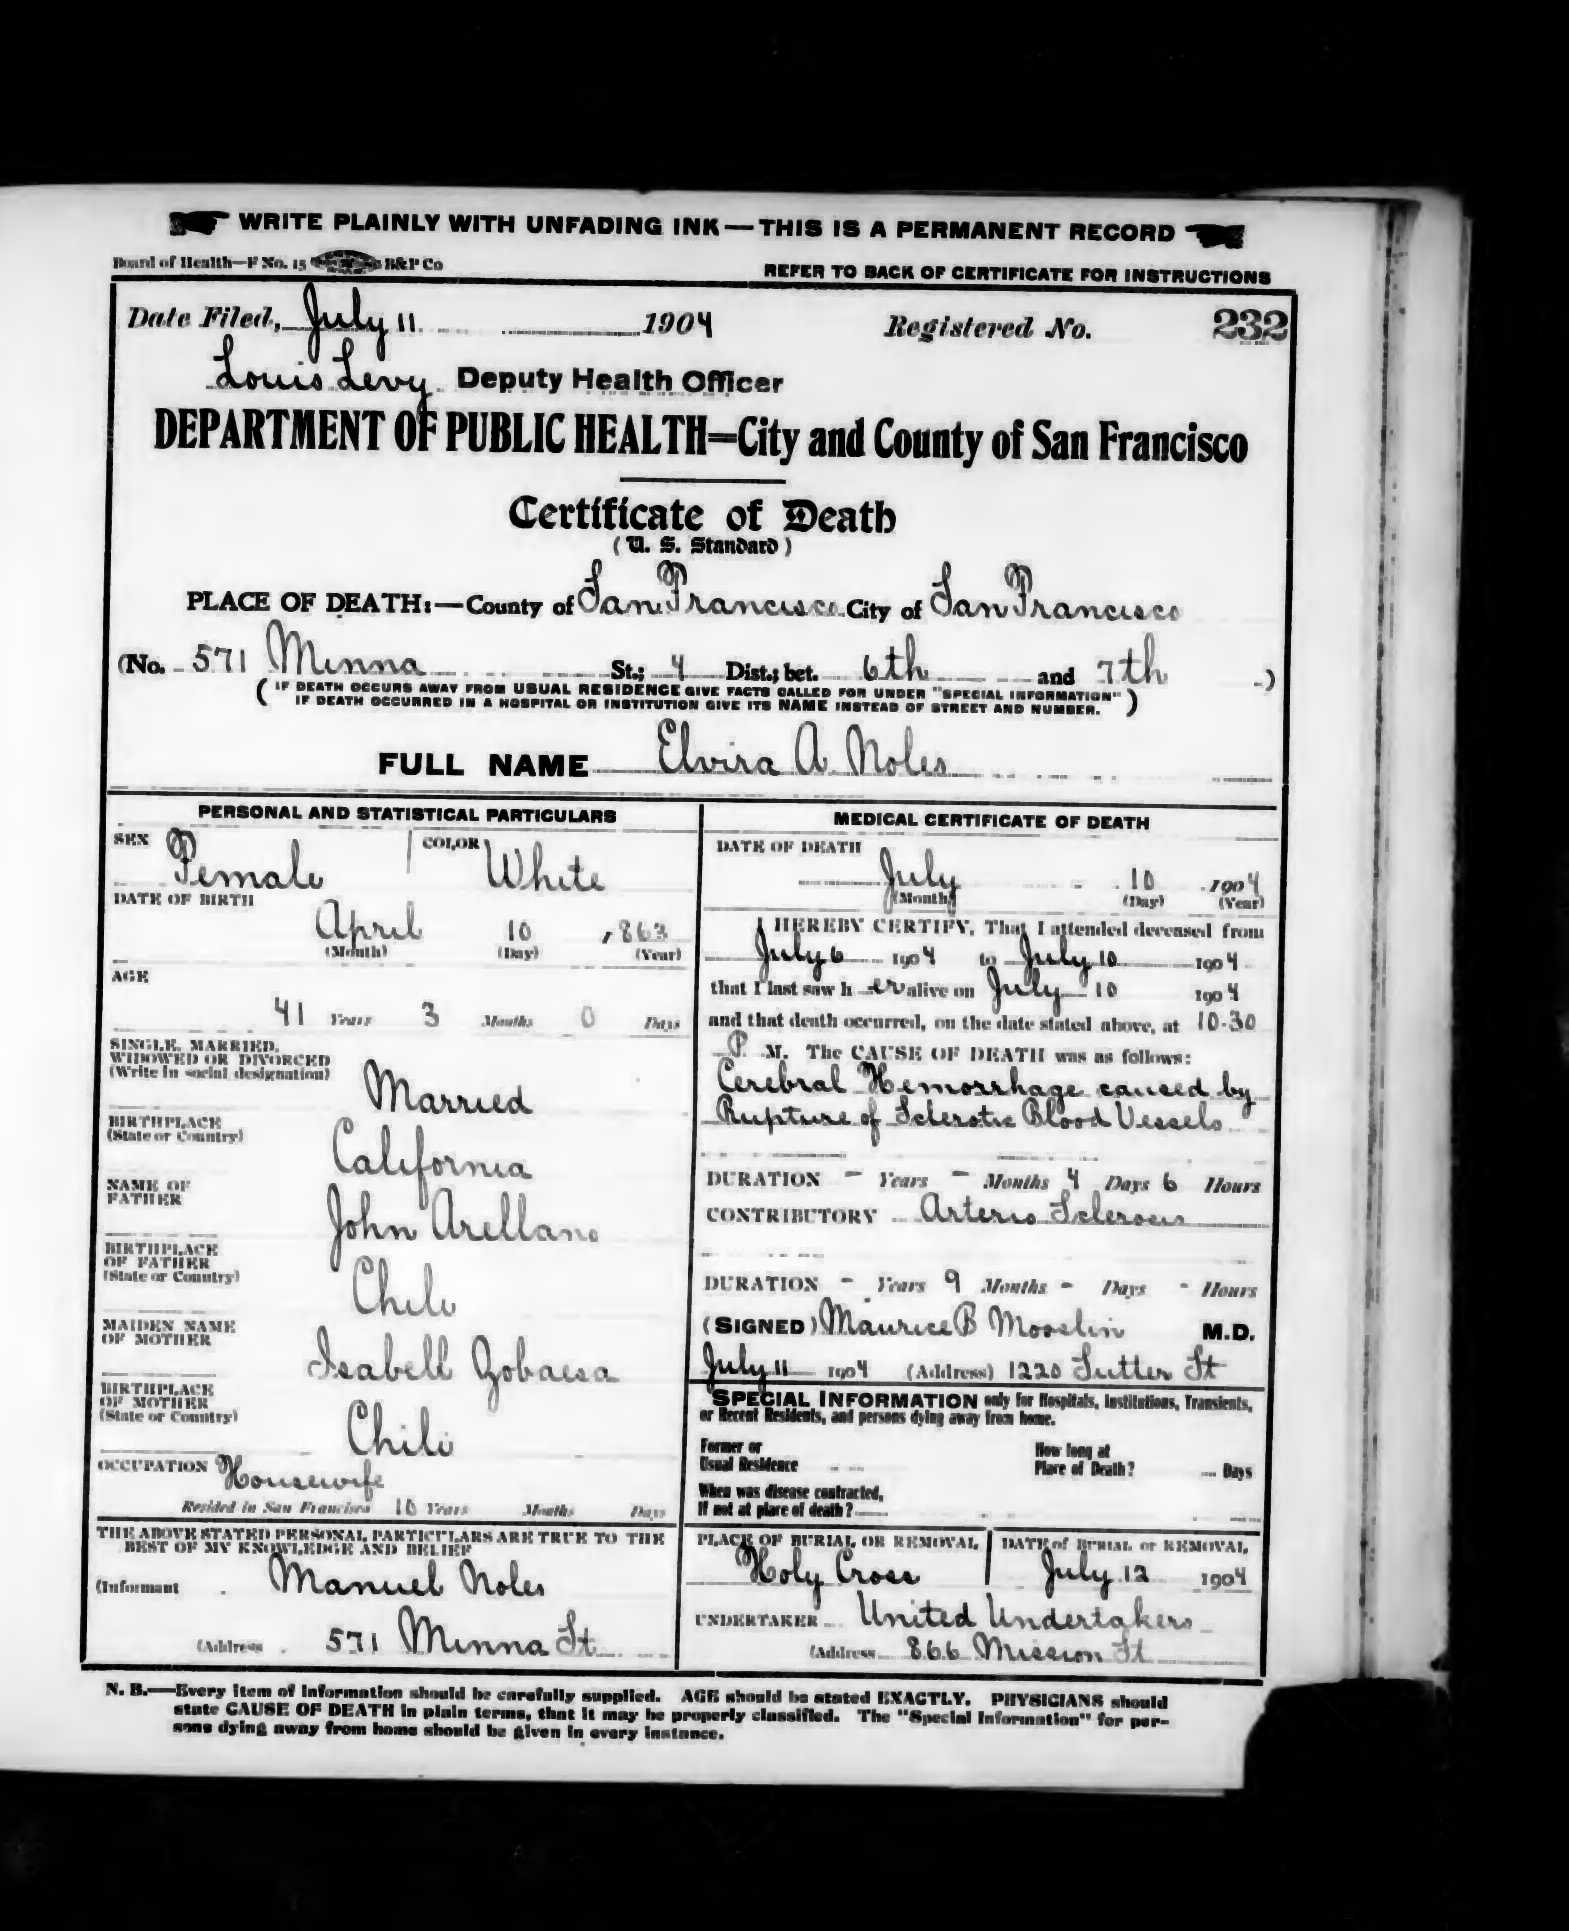 WRITE PLAINLY WITH UNFADING INK—THIS IS A PERMANENT RECORD
Board of Health—F No. 15 B&P Co
REFER TO BACK OF CERTIFICATE FOR INSTRUCTIONS
Date Filed, July 11 1904 Registered No. 232
Louis Levy Deputy Health Officer
DEPARTMENT OF PUBLIC HEALTH=City and County of San Francisco
Certificate of Death
(U. S. Standard)
PLACE OF DEATH:—County of San Francisco City of San Francisco
(No. 571 Minna St.; 4 Dist.; bet. 6th and 7th )
( IF DEATH OCCURS AWAY FROM USUAL RESIDENCE GIVE FACTS CALLED FOR UNDER "SPECIAL INFORMATION"
IF DEATH OCCURRED IN A HOSPITAL OR INSTITUTION GIVE ITS NAME INSTEAD OF STREET AND NUMBER. )
FULL NAME Elvira A Noles
PERSONAL AND STATISTICAL PARTICULARS
SEX Female COLOR White
DATE OF BIRTH
April 10 1863
(Month) (Day) (Year)
AGE
41 Years 3 Months 0 Days
SINGLE, MARRIED,
WIDOWED OR DIVORCED
(Write in social designation)
Married
BIRTHPLACE
(State or Country)
California
NAME OF
FATHER
John Arellano
BIRTHPLACE
OF FATHER
(State or Country)
Chili
MAIDEN NAME
OF MOTHER
Isabell
BIRTHPLACE
OF MOTHER
(State or Country)
Chili
OCCUPATION Housewife
Resided in San Francisco 10 Years Months Days
THE ABOVE STATED PERSONAL PARTICULARS ARE TRUE TO THE
BEST OF MY KNOWLEDGE AND BELIEF
(Informant Manuel Noles
(Address 571 Minna St
MEDICAL CERTIFICATE OF DEATH
DATE OF DEATH
July 10 1904
(Month) (Day) (Year)
I HEREBY CERTIFY, That I attended deceased from
July 6 1904 to July 10 1904
that I last saw h er alive on July 10 1904
and that death occurred, on the date stated above, at 10-30
P. M. The CAUSE OF DEATH was as follows:
Cerebral Hemorrhage caused by
Rupture of Sclerotic Blood Vessels
DURATION - Years - Months 4 Days 6 Hours
CONTRIBUTORY Arterio Sclerosis
DURATION - Years 9 Months - Days - Hours
(SIGNED) Maurice B Mooslin M.D.
July 11 1904 (Address) 1220 Sutter St
SPECIAL INFORMATION only for Hospitals, Institutions, Transients,
or Recent Residents, and persons dying away from home.
Former or
Usual Residence
How long at
Place of Death? Days
When was disease contracted,
If not at place of death?
PLACE OF BURIAL OR REMOVAL
Holy Cross
DATE of BURIAL or REMOVAL
July 12 1904
UNDERTAKER United Undertakers
(Address 866 Mission St
N. B.—Every item of information should be carefully supplied. AGE should be stated EXACTLY. PHYSICIANS should
state CAUSE OF DEATH in plain terms, that it may be properly classified. The "Special Information" for per-
sons dying away from home should be given in every instance.